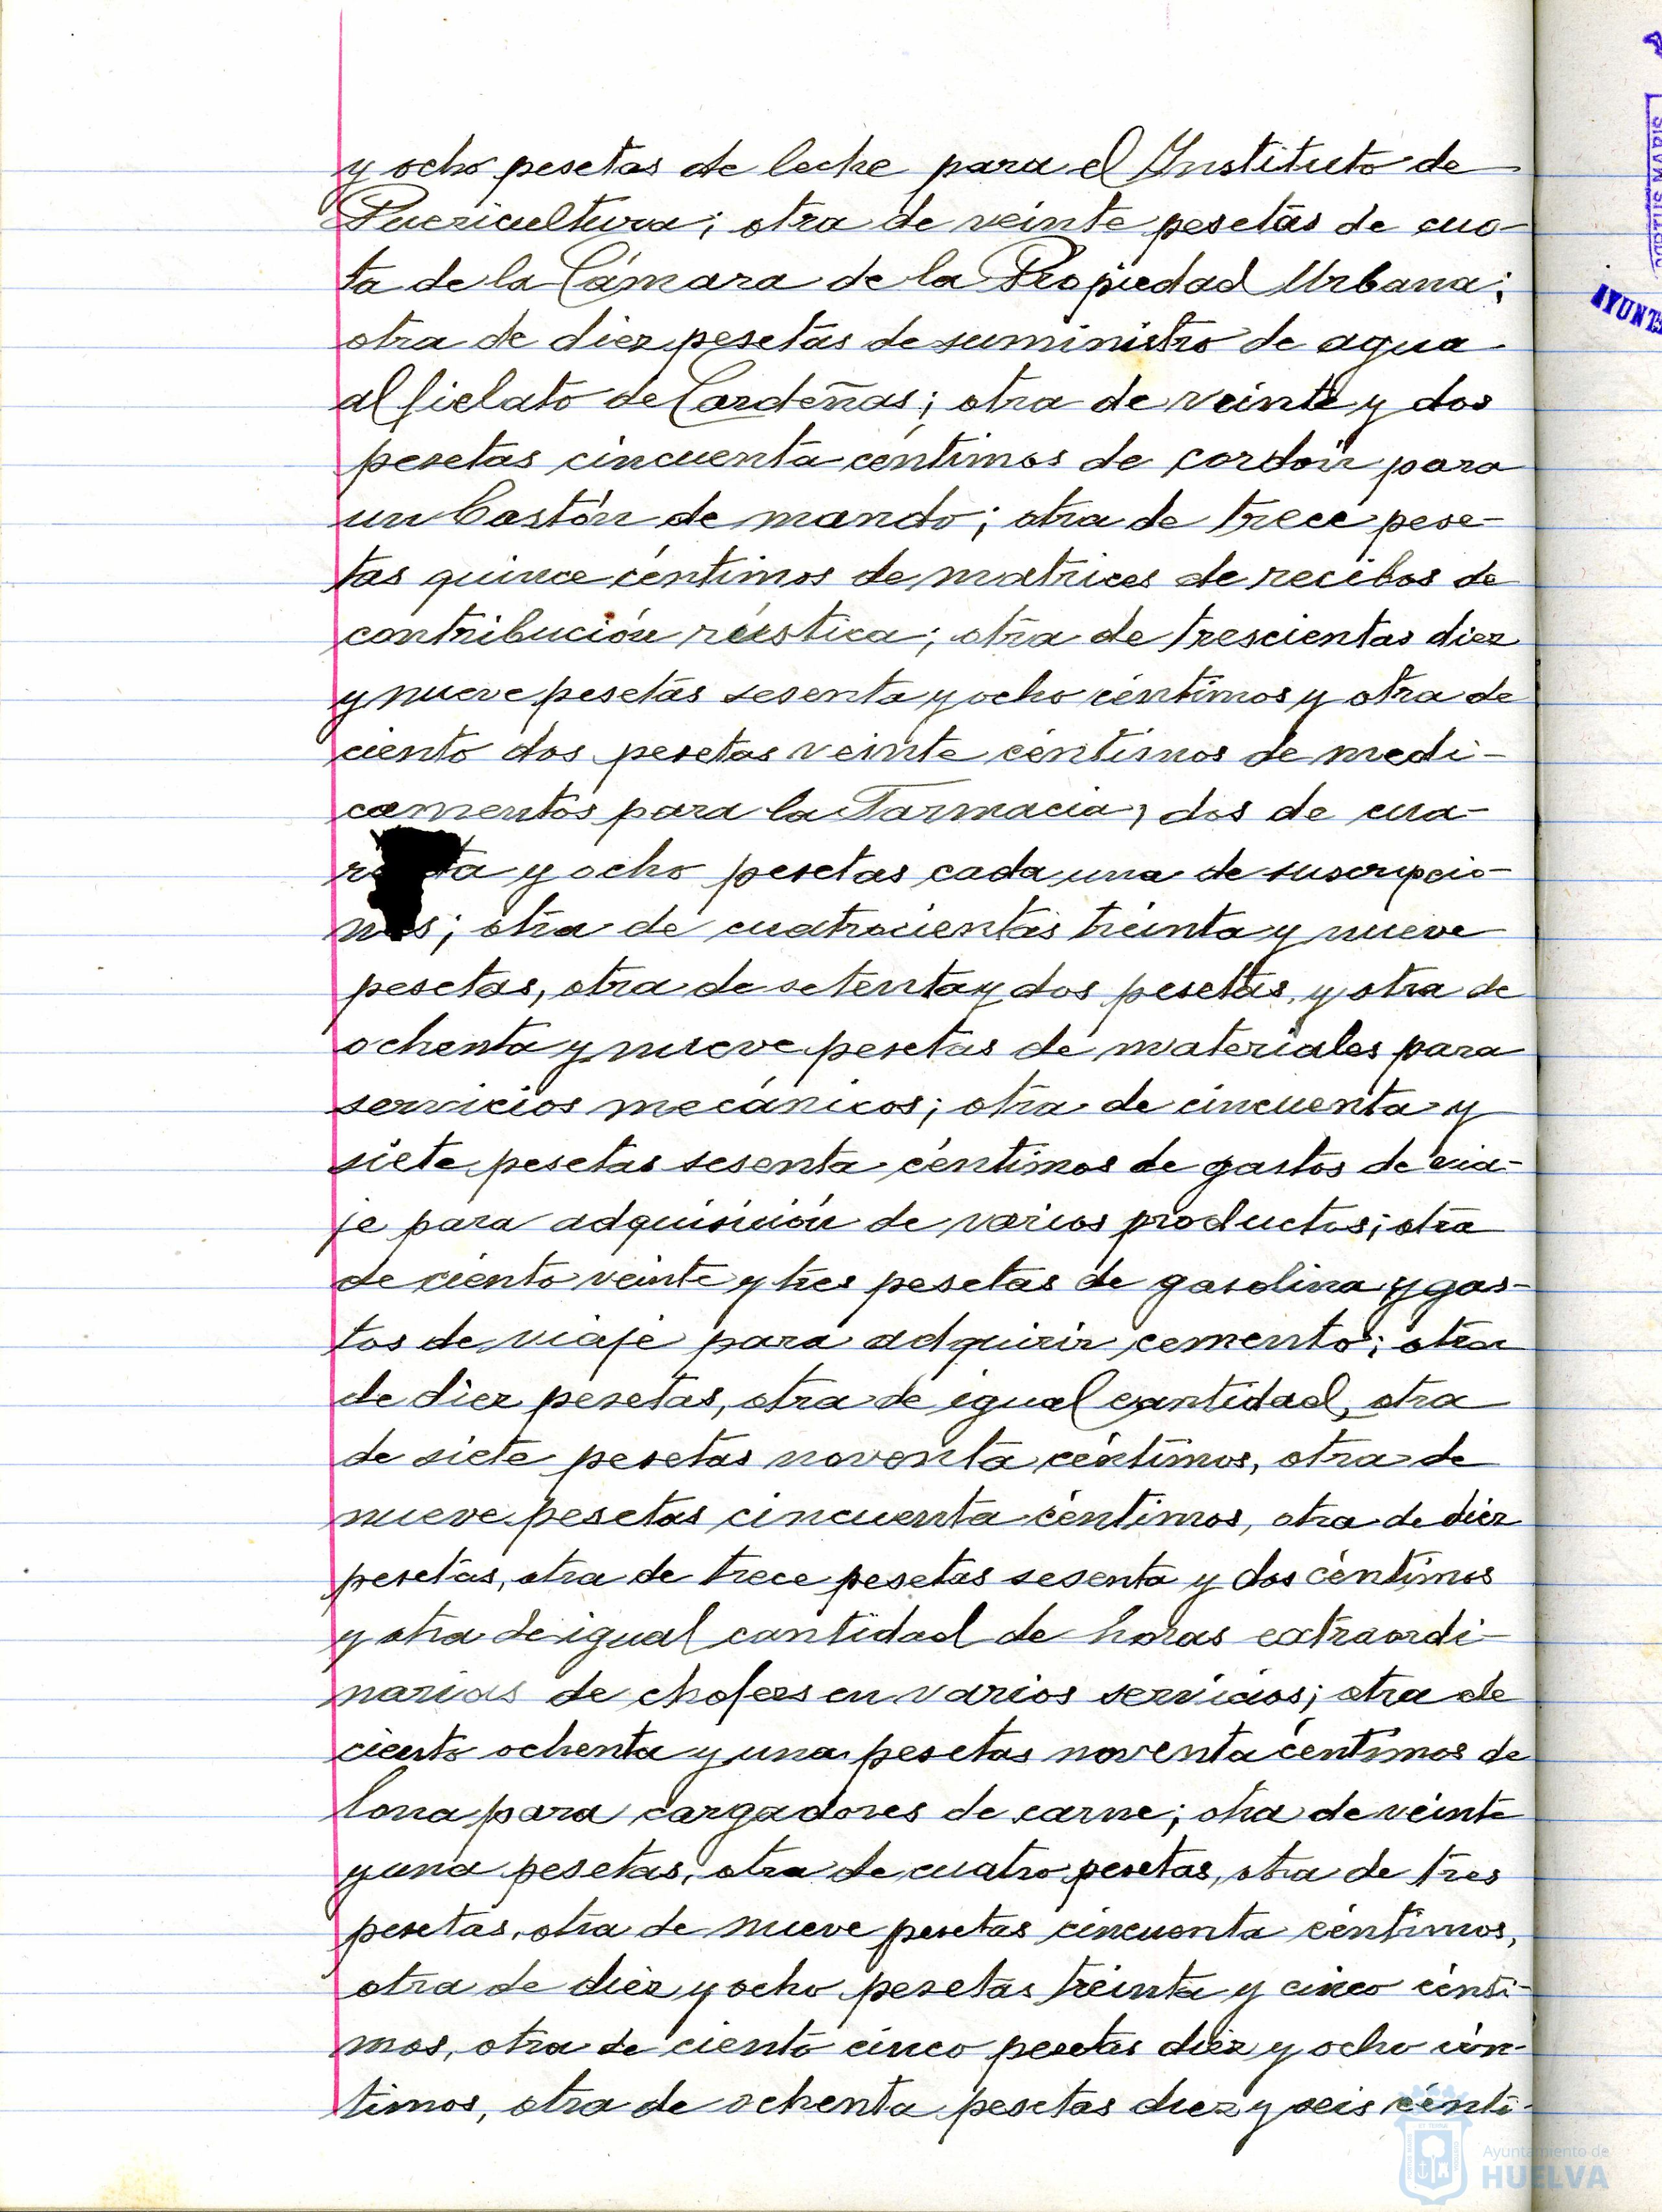 y ocho pesetas de leche para el Instituto de
Puericultura; otra de veinte pesetas de cuo-
ta de la Cámara de la Propiedad Urbana;
otra de diez pesetas de suministro de agua
al fielato de Cardeñas; otra de veinte y dos
pesetas cincuenta céntimos de cordón para
un bastón de mando; otra de trece pese-
tas quince céntimos de matrices de recibos de
contribución rústica; otra de trescientas diez
y nueve pesetas sesenta y ocho céntimos y otra de
ciento dos pesetas veinte céntimos de medi-
camentos para la Farmacia, dos de cua-
y ocho pesetas cada una de suscripcio-
nes; otra de cuatrocientas treinta y nueve
pesetas, otra de setenta y dos pesetas, y otra de
ochenta y nueve pesetas de materiales para
servicios mecánicos; otra de cincuenta y
siete pesetas sesenta céntimos de gastos de via-
je para adquisición de varios productos; otra
de ciento veinte y tres pesetas de gasolina y gas-
tos de viaje para adquirir cemento; otra
de diez pesetas, otra de igual cantidad, otra
de siete pesetas noventa céntimos, otra de
nueve pesetas cincuenta céntimos, otra de diez
pesetas, otra de trece pesetas sesenta y dos céntimos
y otra de igual cantidad de horas extraordi-
narias de choferes en varios servicios; otra de
ciento ochenta y una pesetas noventa céntimos de
lona para cargadores de carne; otra de veinte
y una pesetas, otra de cuatro pesetas, otra de tres
pesetas, otra de nueve pesetas cincuenta céntimos,
otra de diez y ocho pesetas treinta y cinco cénti-
mos, otra de ciento cinco pesetas diez y ocho cén-
timos, otra de ochenta pesetas diez y seis cénti-
PORTUS MARIS
AYUNT
Ayuntamiento de
HUELVA